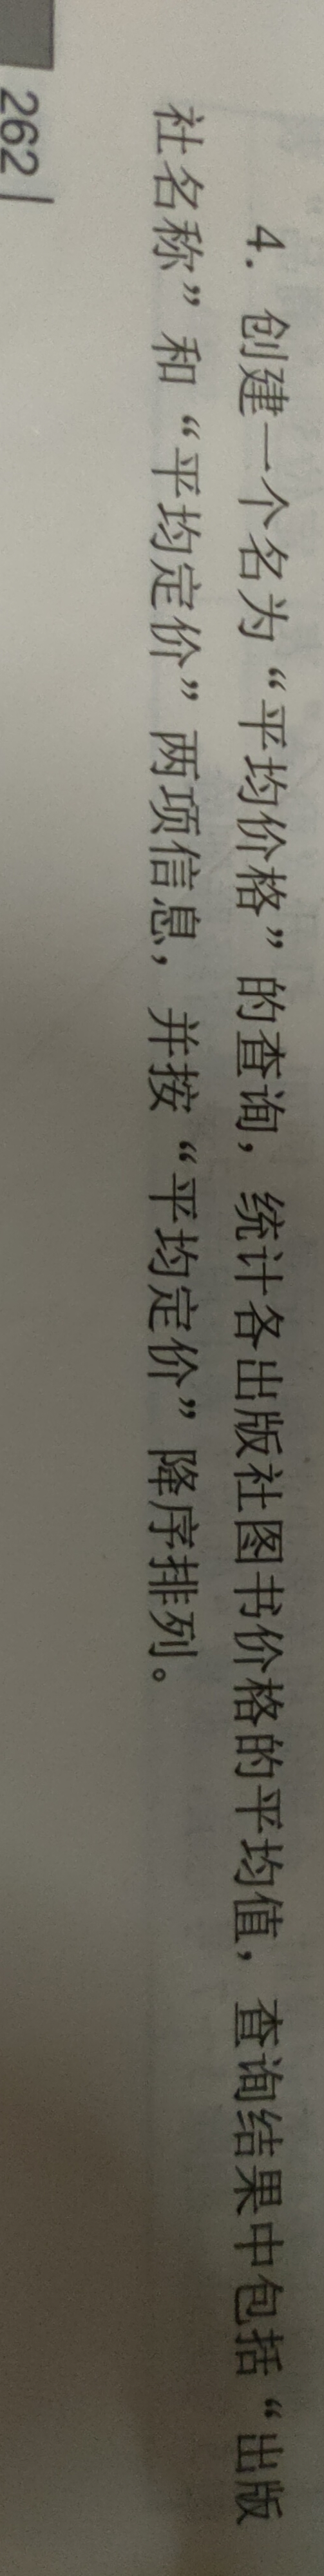 4. 创建一个名为“平均价格”的查询，统计各出版社图书价格的平均值，查询结果中包括“出版
社名称”和“平均定价”两项信息，并按“平均定价”降序排列。
262 |